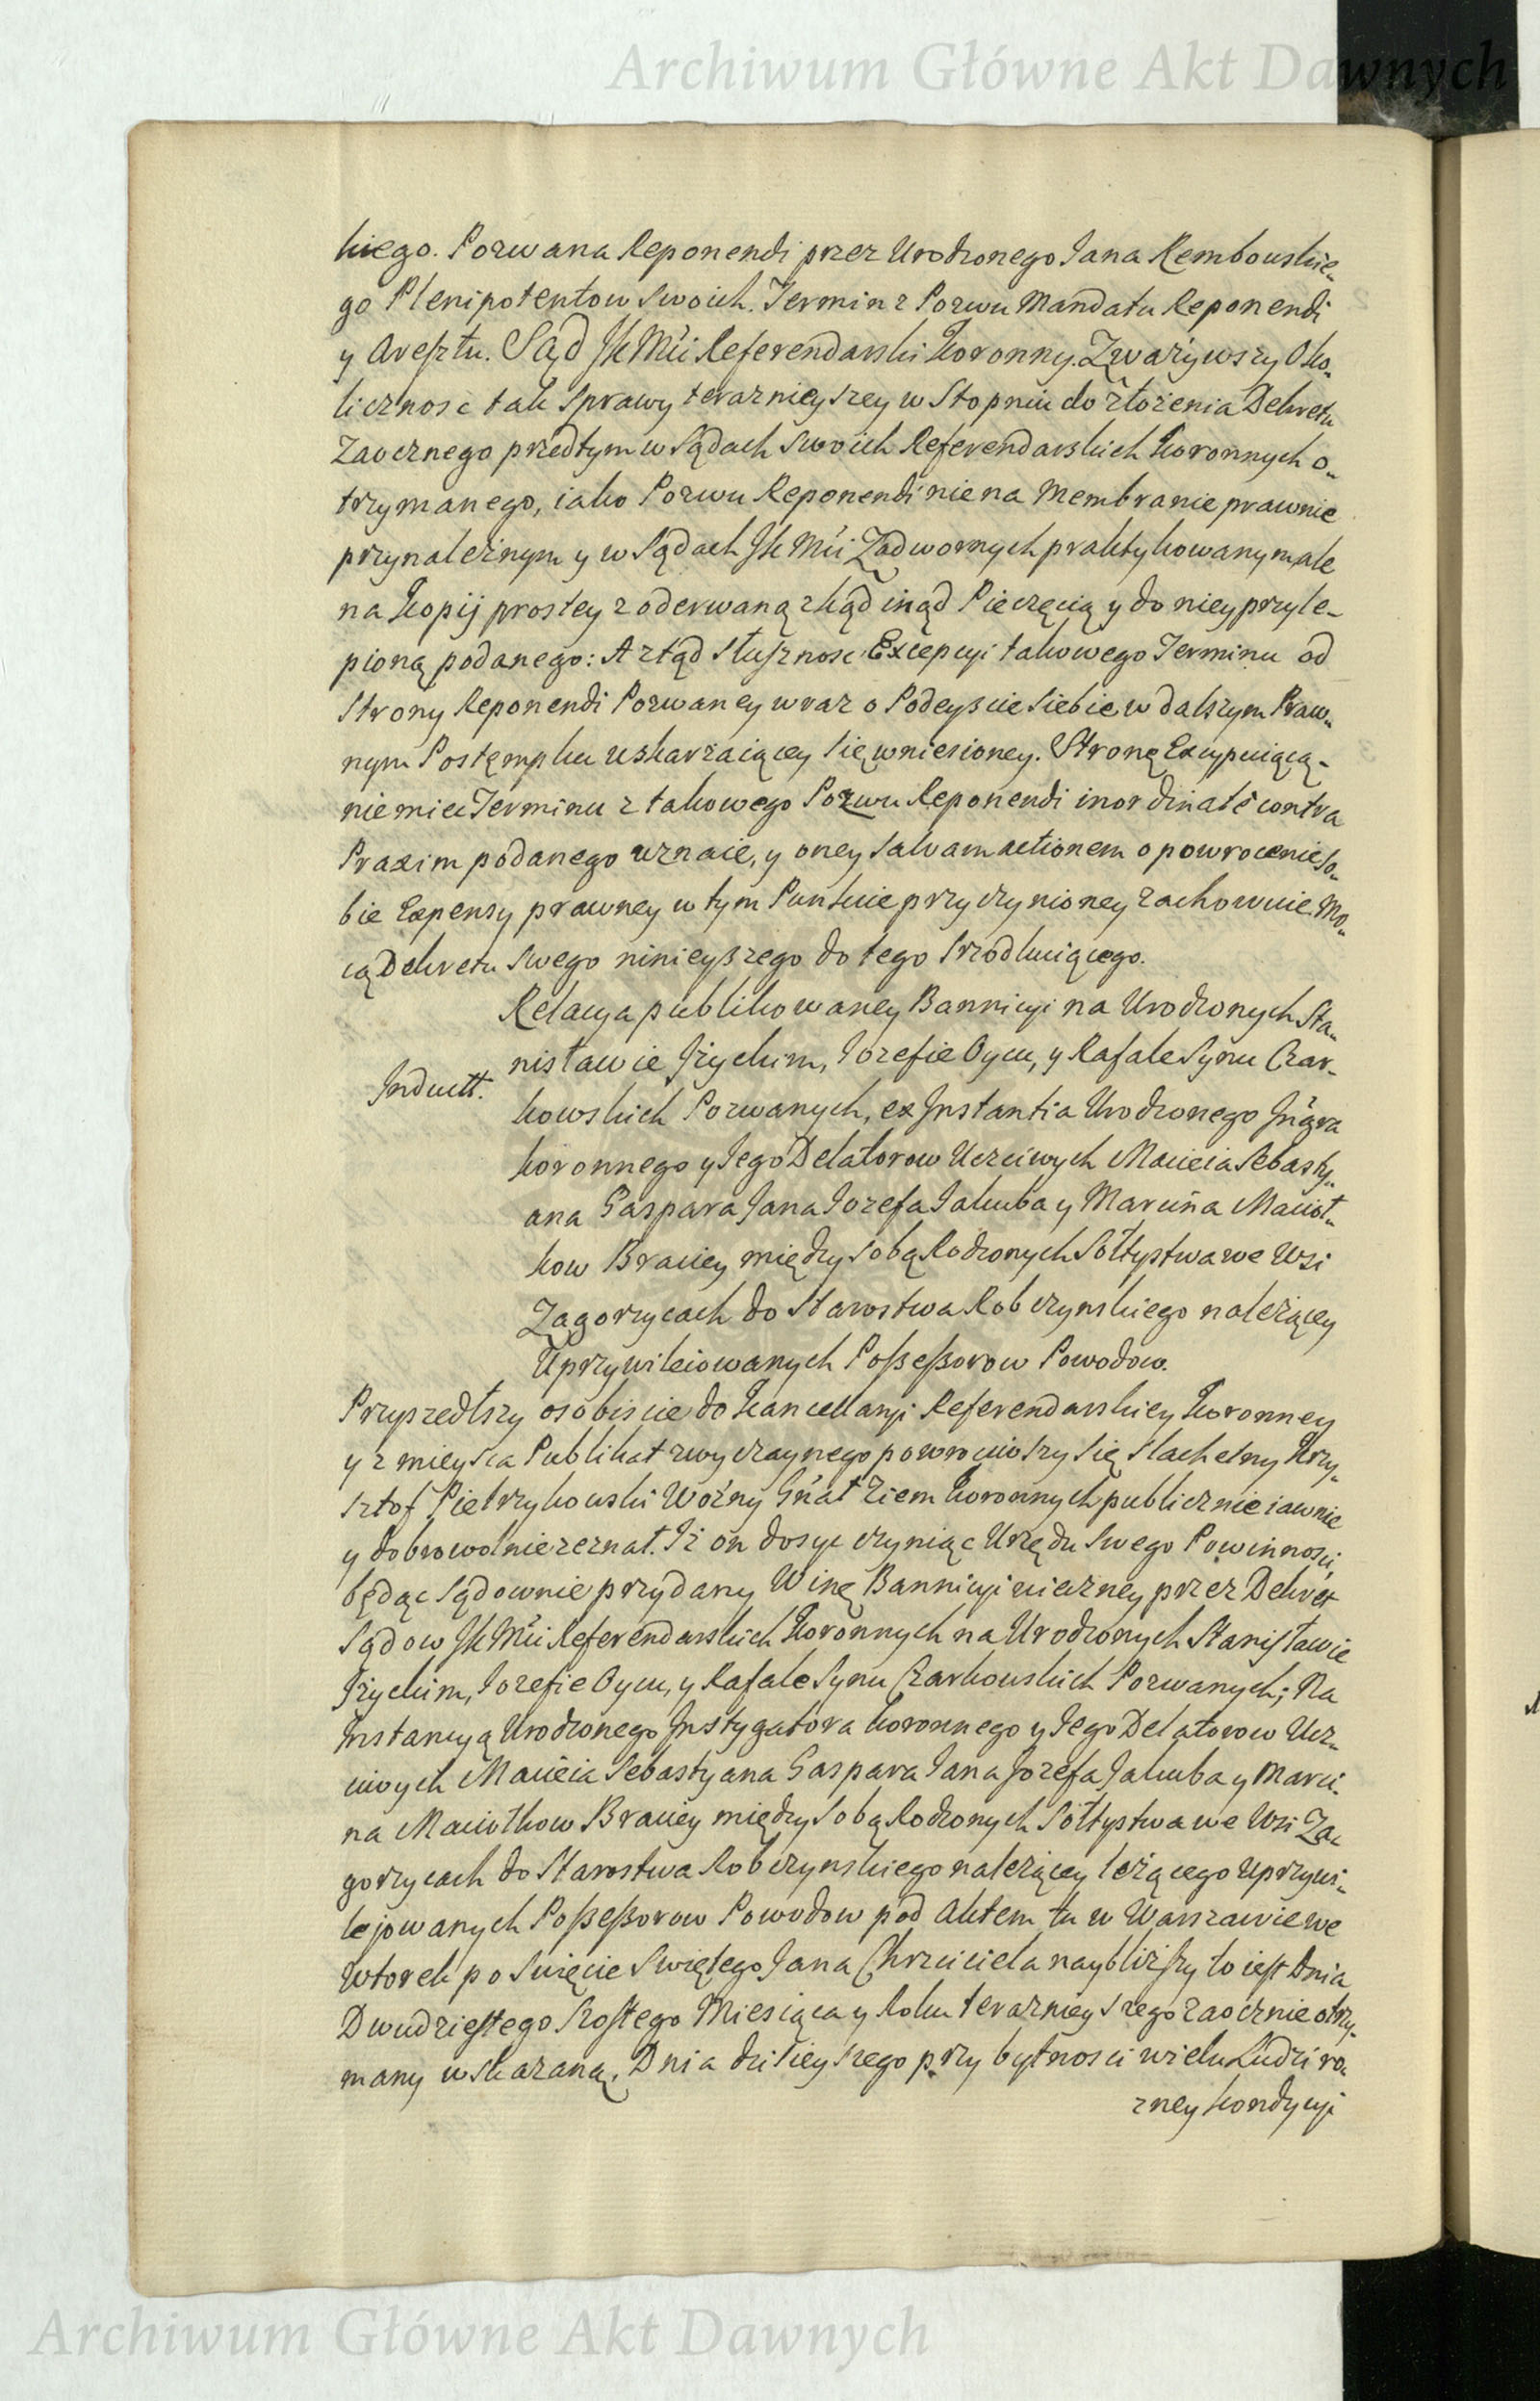 Archiwum Główne Akt Dawnych
kiego. Pozwana Reponendi przez Urodzonego Jana Rembowskie„
go Plenipotentow swoich. Termin z Pozwu Mandatu Reponendi
y Aresztu. Sąd JK Mći Referendarski Koronny. Zważywszy Oko„
liczność tak Sprawy teraznieyszey w Stopniu do złożenia Dekretu
Zaocznego przedtym w Sądach swoich Referendarskich Koronnych o„
trzymanego, iako Pozwu Reponendi nie na Membranie prawnie
przynależnym y w Sądach JK Mći Zadwornych praktykowanym ale
na Kopij prostey z oderwaną zkąd inąd Pieczęcią y do niey przyle-
pioną podanego: A ztąd Słuszność Excepcyi takowego Terminu od
Strony Reponendi Pozwaney wraz o Podeyscie siebie w dalszym Praw„
nym Postęmpku uskarżaiącey się wniesioney. Stronę Excypuiącą-
nie miec Terminu z takowego Pozwu Reponendi inordinatè contra
Praxim podanego uznaie, y oney salvam actionem o powrocenie so„
bie Expensy prawney w tym Punkcie przyczynioney zachowuie. Mo„
cą Dekretu swego ninieyszego do tego srzodkuiącego.
Relacya publikowaney Bannicyi na Urodzonych Sta„
nisławie Jżyckim, Jozefie Oycu, y Rafale Synu Czar-
Inductt.
kowskich Pozwanych, ex Instantia Urodzonego Jn̄gra
koronnego y Jego Delatorow Uczciwych Macieia Sebasty„
ana Gaspara Jana Jozefa Jakuba y Marcina Macioł„
kow Braciey między sobą Rodzonych Sołtystwa we Wsi
Zagorzycach do Starostwa Robczynskiego należącey
Uprzywileiowanych Possessorow Powodow.
Przyszedłszy osobiscie do Kancellaryi Referendarskiey Koronney
y z mieysca Publikat zwyczaynego powrociwszy się Slachetny Krzy„
sztof Pietrzykowski Woźny Gn̄at Ziem Koronnych publicznie iawnie
y dobrowolnie zeznał. Iż on dosyc czyniąc Urzędu swego Powinności
będąc Sądownie przydany Winę Bannicyi wieczney przez Dekret
Sądow JK Mći Referendarskich Koronnych na Urodzonych Stanisławie
Jżyckim, Jozefie Oycu, y Rafale Synu Czarkowskich Pozwanych; Na
Instancyą Urodzonego Instygatora koronnego y Jego Delatorow Ucz„
ciwych Macieia Sebastyana Gaspara Jana Jozefa Jakuba y Marci„
na Maciołkow Braciey między sobą Rodzonych Sołtystwa we Wsi Za„
gorzycach do Starostwa Robczynskiego należącey leżącego uprzywi„
lejowanych Possessorow Powodow pod Aktem tu w Warszawie we
Wtorek po Swięcie Swiętego Jana Chrzciciela naybliższy to iest Dnia
Dwudziestego Szostego Miesiąca y Roku teraznieyszego zaocznie otrzy„
many wskazaną. Dnia dzisieyszego przy bytnosci wielu Ludzi ro„
zney kondycyi
Archiwum Główne Akt Dawnych